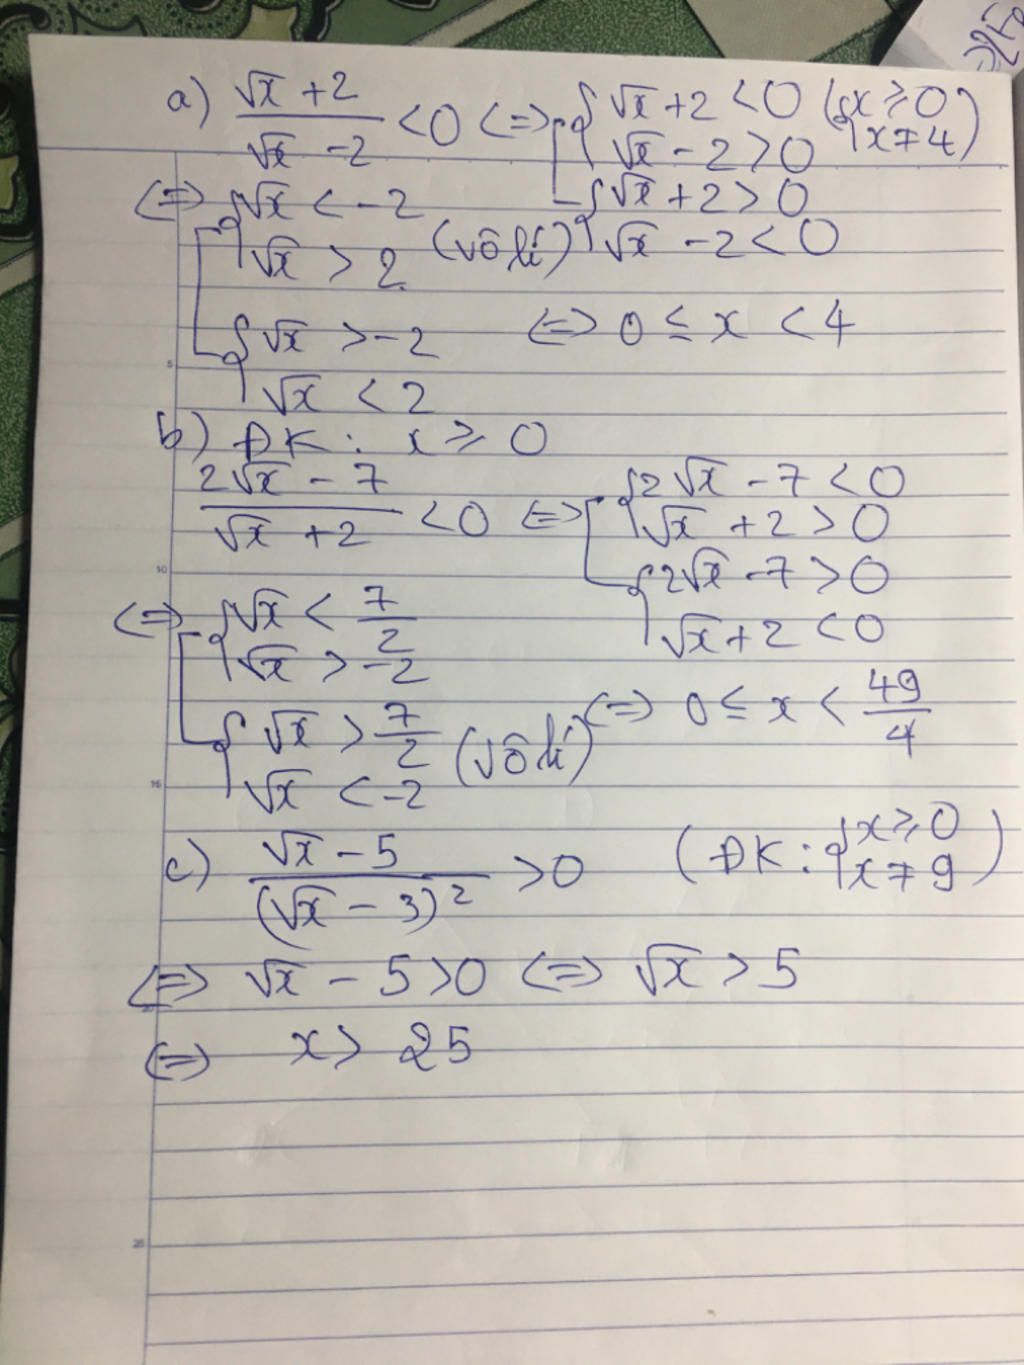 a) (√x + 2)/(√x - 2) < 0 <=> [ { √x + 2 < 0 ( { x ≥ 0
√x - 2 > 0 x ≠ 4 )
{ √x + 2 > 0
√x - 2 < 0
<=> [ { √x < -2
√x > 2 (vô lí)
{ √x > -2
√x < 2
<=> 0 ≤ x < 4
b) ĐK: x ≥ 0
(2√x - 7)/(√x + 2) < 0 <=> [ { 2√x - 7 < 0
√x + 2 > 0
{ 2√x - 7 > 0
√x + 2 < 0
<=> [ { √x < 7/2
√x > -2
{ √x > 7/2
√x < -2 (vô lí)
<=> 0 ≤ x < 49/4
c) (√x - 5)/(√x - 3)² > 0 (ĐK: { x ≥ 0
x ≠ 9 )
<=> √x - 5 > 0 <=> √x > 5
<=> x > 25
5
10
15
20
25